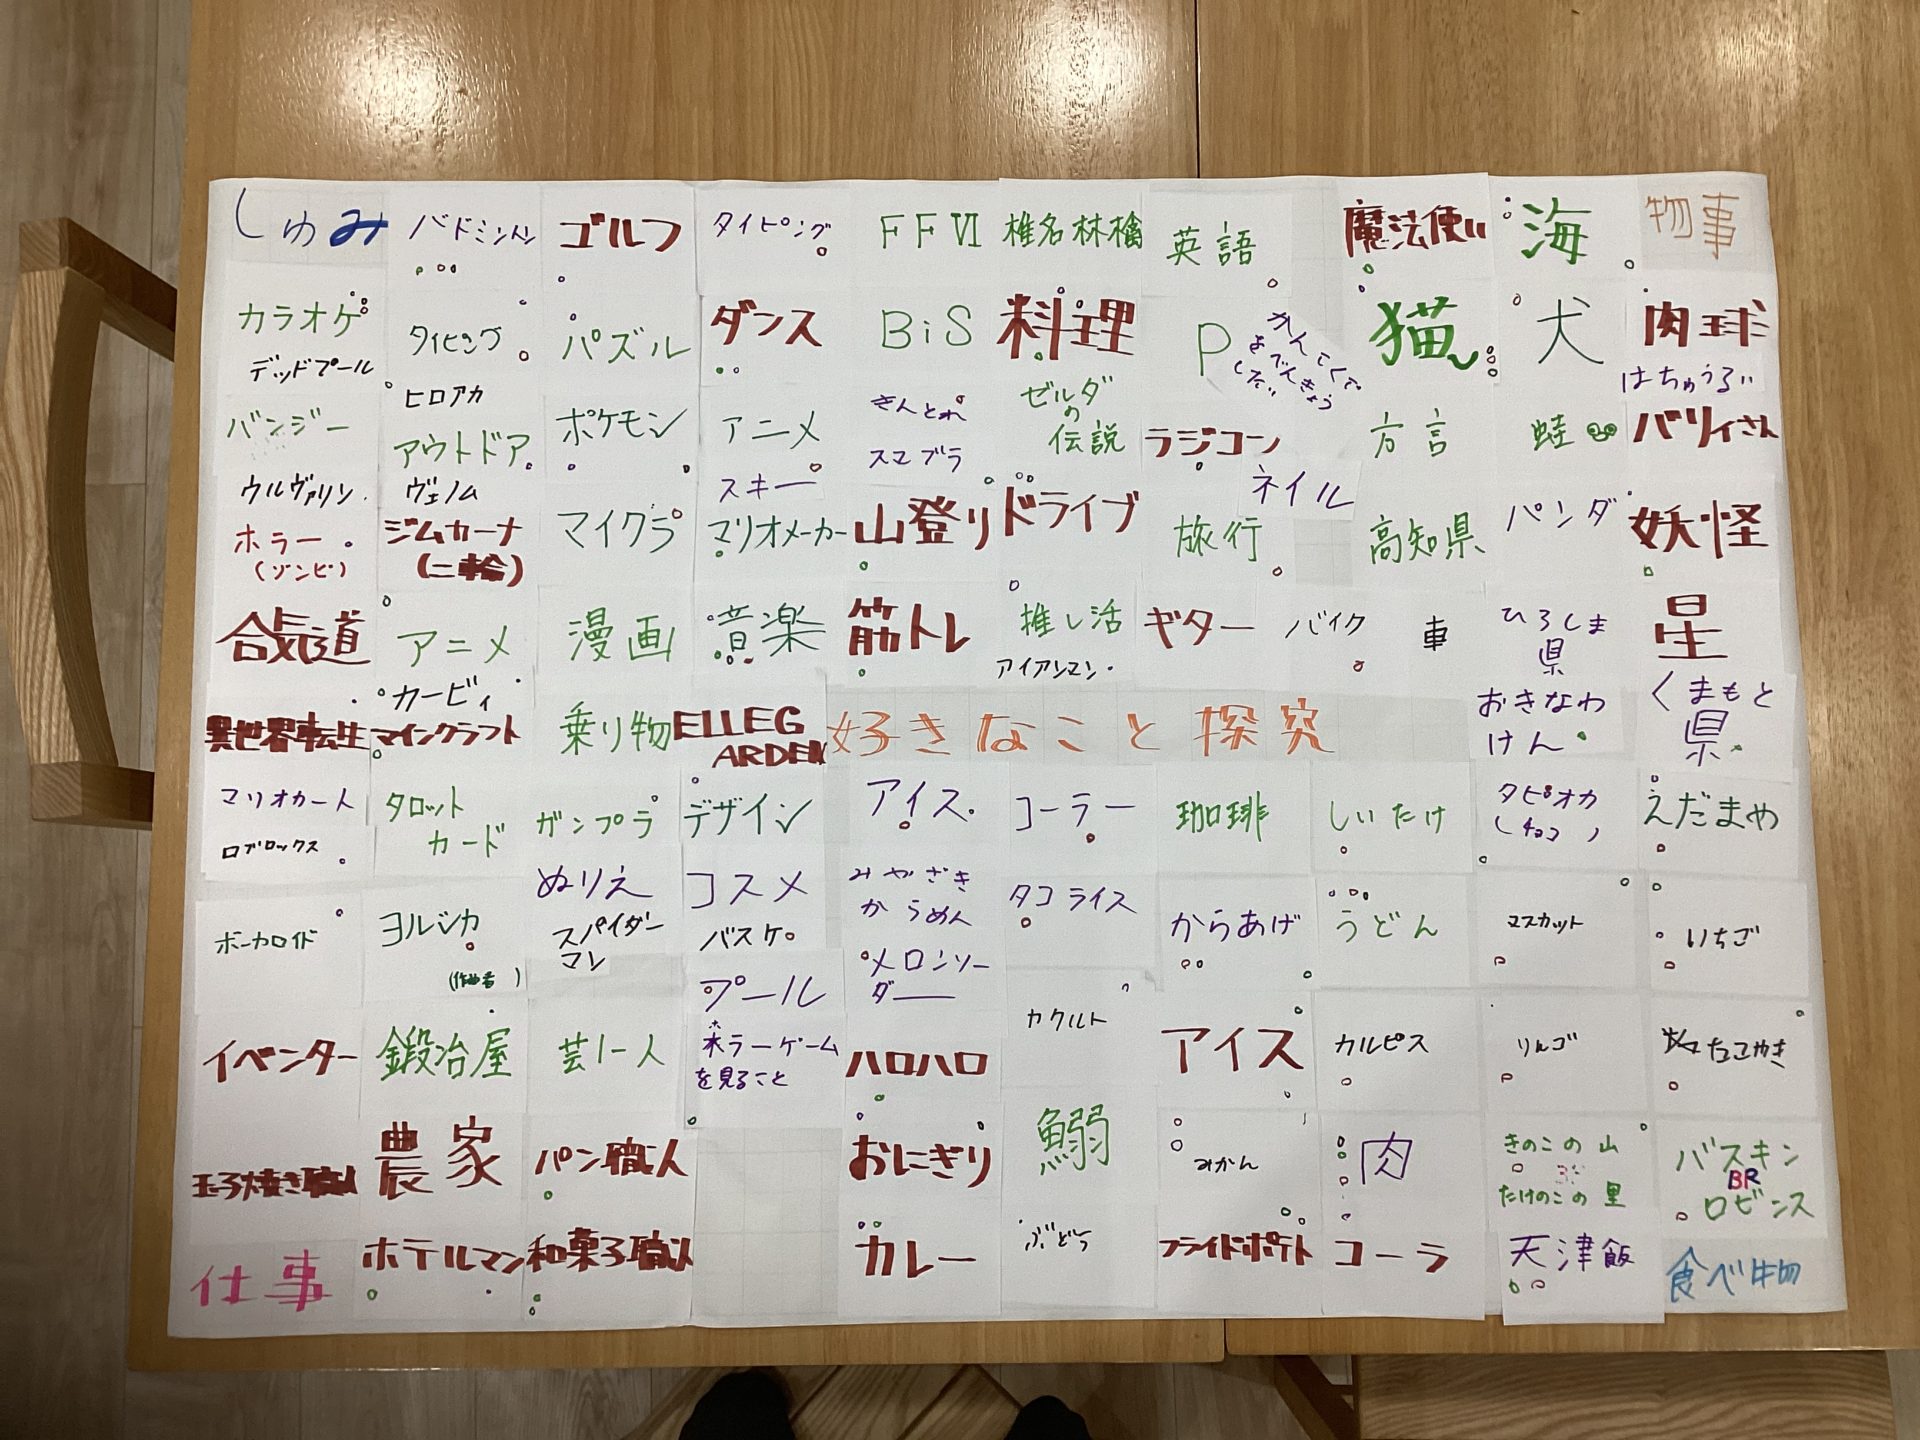 しゅみ
バドミントン
ゴルフ
タイピング
FFⅥ
椎名林檎
英語
魔法使い
海
物事
カラオケ
タイピング
パズル
ダンス
BiS
料理
P
かんこくで
よでんきょう
したい
猫
犬
肉球
デッドプール
ヒロアカ
はちゅうるい
バンジー
アウトドア
ポケモン
アニメ
きんとれ
ゼルダ
の
伝説
ラジコーン
方言
蛙
バリィさん
スマブラ
ウルヴァリン
ヴェノム
スキー
ネイル
ホラー
(ゾンビ)
ジムカーナ
(二輪)
マイクラ
マリオメーカー
山登り
ドライブ
旅行
高知県
パンダ
妖怪
合気道
アニメ
漫画
音楽
筋トレ
推し活
アイアンマン
ギター
バイク
車
ひろしま
県
星
カービィ
異世界転生
マインクラフト
乗り物
ELLEG
ARDEN
好きなこと探究
おきなわ
けん
くまもと
県
マリオカート
ロブロックス
タロット
カード
ガンプラ
デザイン
アイス
コーラー
珈琲
しいたけ
タピオカ
(チョコ)
えだまめ
ぬりえ
コスメ
みやざき
からめん
タコライス
からあげ
うどん
マスカット
いちご
ボーカロイド
ヨルシカ
(作曲者)
スパイダー
マン
バスケ
プール
メロンソー
ダー
ヤクルト
イベンター
鍛冶屋
芸人
ホラーゲーム
を見ること
ハロハロ
アイス
カルピス
りんご
たこやき
玉子焼き職人
農家
パン職人
おにぎり
鰯
みかん
肉
きのこの山
たけのこの里
バスキン
BR
ロビンス
仕事
ホテルマン
和菓子職人
カレー
ぶどう
フライドポテト
コーラ
天津飯
食べ物